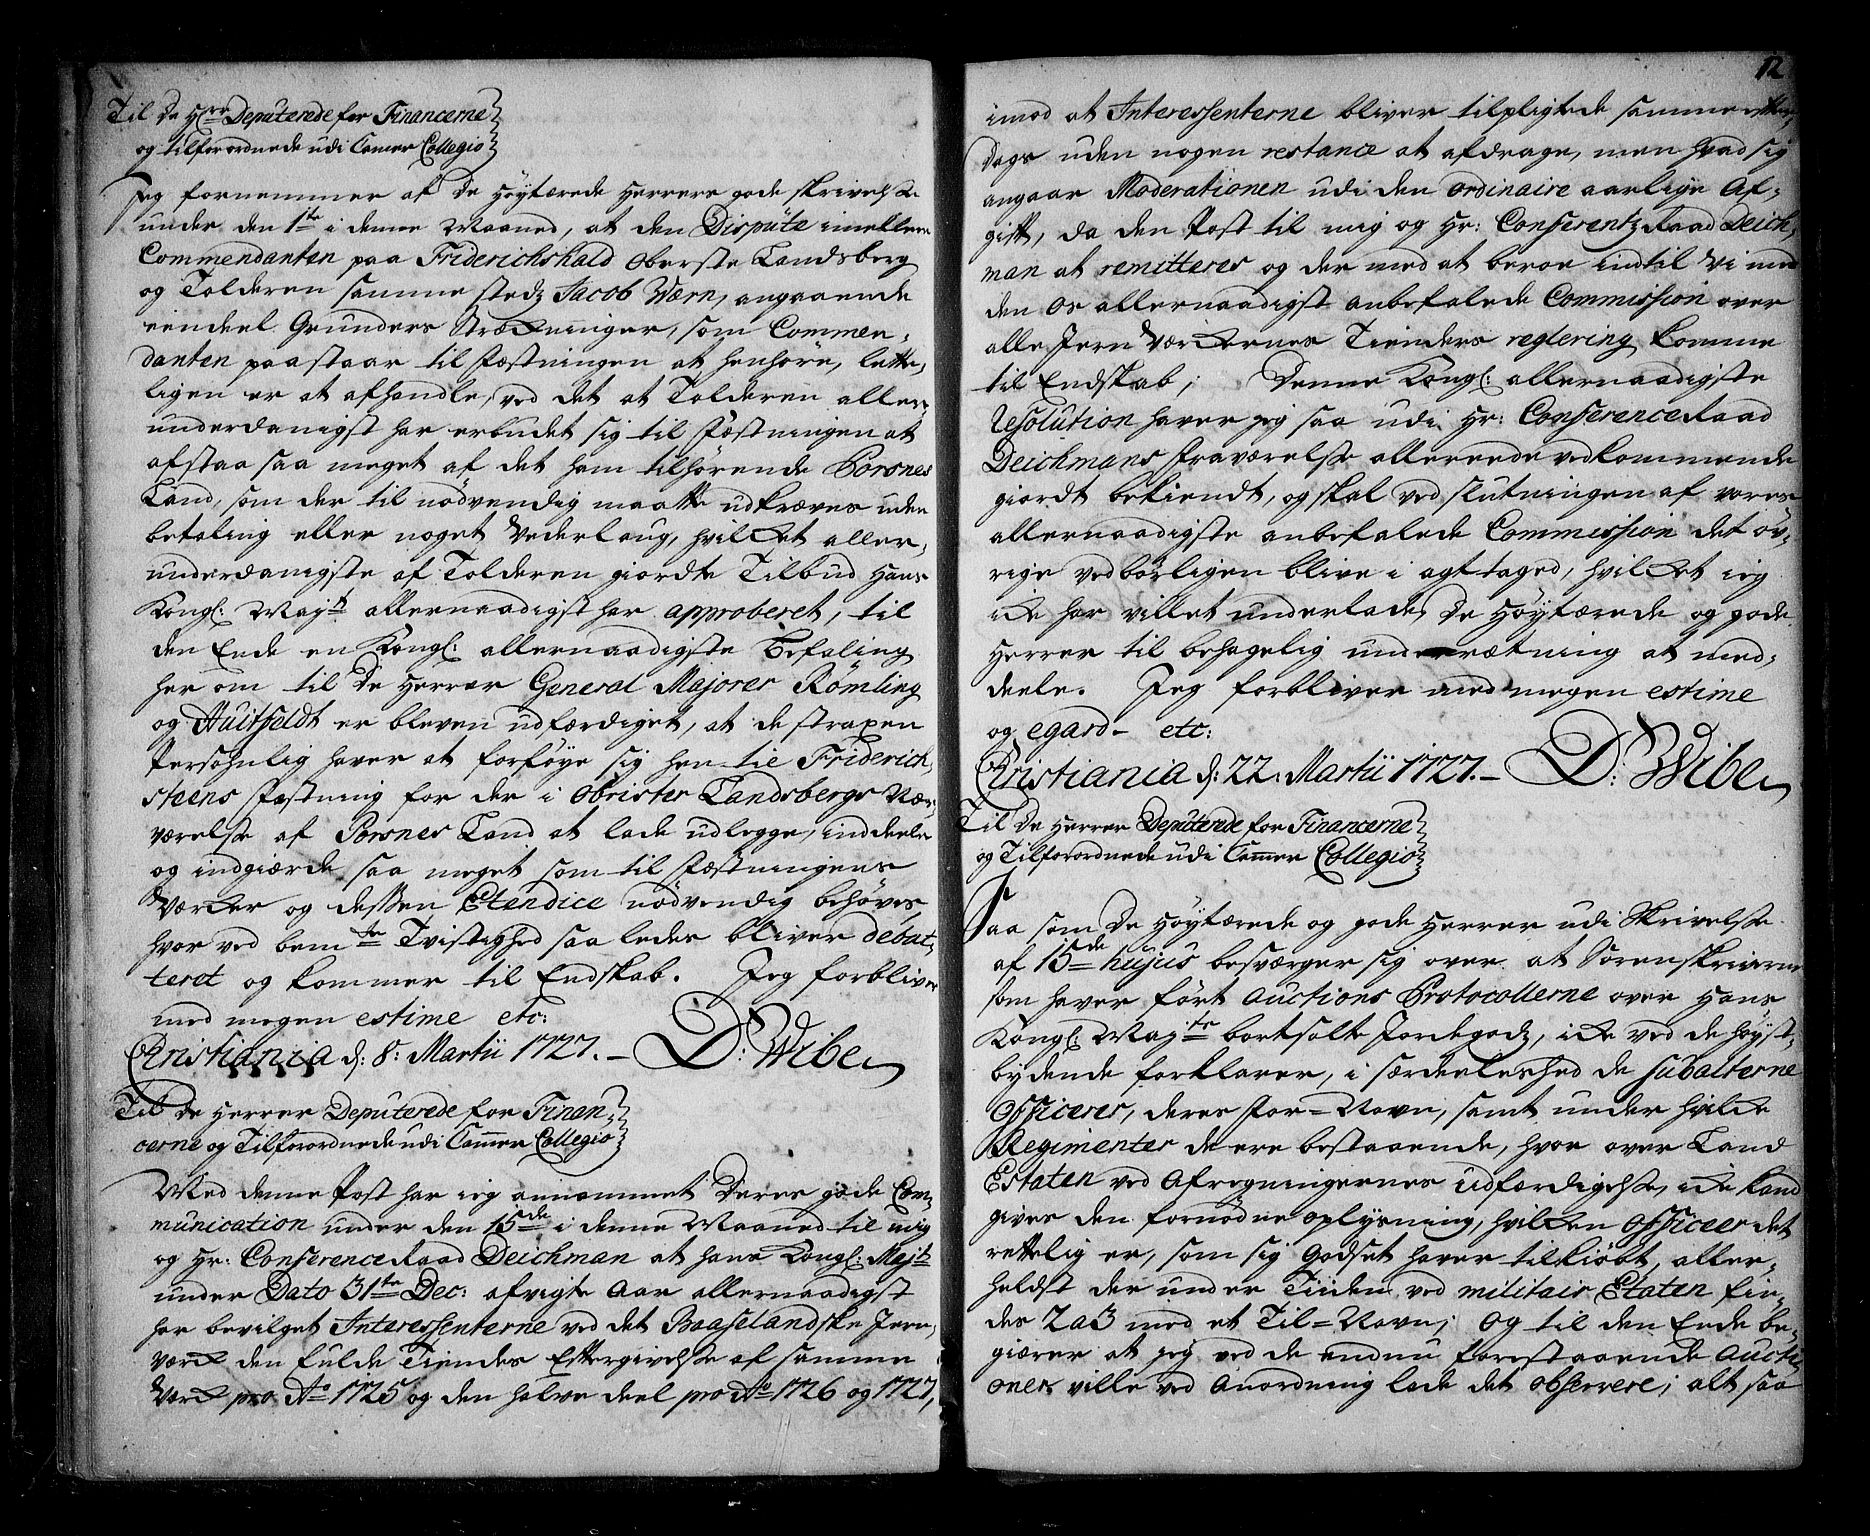 Til De H.rrer Deputerede for Financerne
og tilforordnede udi Cammer Collegio
Jeg fornemmer af De Høytærede Herrers gode skrivelse
under den 1te i denne Maaned, at den Dispute imellem
Commendanten paa Friderichshald Oberste Landsberg
og Tolderen samme stedz Jacob Wærn, angaaende
eendeel Grunders Strækninger, som Commen-
danten paastaar til Fæstningen at henhöre, lette-
ligen er at afhandle, ved det at Tolderen aller-
underdanigst har erbudet sig til Fæstningen at
afstaa saa meget af det ham tilhörende Porsnes
Land, som der til nödvendig maatte udkræves uden
betaling eller noget Vederlaug, hvilket aller-
underdanigste af Tolderen giordte Tilbud Hans
Kongl: Mayt allernaadigst har approberet, til
den Ende en Kongl: allernaadigste Befaling
her om til De Herrer General Majorer Römling
og Huitfeldt er bleven udfærdiget, at de straxen
Persohnlig haver at forföye sig hen til Friderich-
steens Fæstning for der i Obrister Landsbergs Nær-
værelse af Porsnes Land at lade udlegge, inddeele
og indgiærde saa meget som til Fæstningens
Værker og dessen Etendice nödvendig behöves
hvor ved bemte Tvistighed saa leder bliver debat-
teret og kommer til Endskab. Jeg forbliver
med megen estime etc:
Christiania d: 8: Martii 1727. - D: Wibe
Til De Herrer Deputerede for Finan-
cerne og Tilforordnede udi Cammer Collegio
Med denne Post har ieg annammet Deres gode Com-
munication under den 15de i denne Maaned til mig
og Hr: Conference Raad Deichman at hans Kongl: Mayt
under Dato 31te Dec: afvigte Aar allernaadigst
har bevilget Interessenterne ved det Baaselandske Jern-
værk den fulde Tiendes Eftergivelse af samme
Værk pro Ao 1725 og den halve deel pro Ao 1726 og 1727,
12
imod at Interessenterne bliver tilpligtede samme
Dags uden nogen restance at afdrage, men hvad sig
angaar Moderationen udi den ordinaire aarlige Af-
gift, da den Post til mig og Hr: Conferentz Raad Deich-
man at remitteres og der med at beroe indtil Vi med
den os allernaadigst anbefalede Commission over
alle Jern Værkernes Tienders reglering komme
til Endskab; Denne Kongl: allernaadigste
Resolution haver jeg saa udi Hr: Conference Raad
Deichmans Fraværelse allereede vedkommende
giordt bekiendt, og skal ved slutningen af vores
allernaadigste anbefalede Commission det öv-
rige vedbörligen blive i agt taged, hvilket ieg
ike har villet underlade De Höytærede og gode
Herrer til behagelig underrætning at med-
deele. Jeg forbliver med megen estime
og egard - etc:
Christiania d: 22: Martii 1727. - D: Wibe
Til De Herrer Deputerede for Financerne
og Tilforordnede udi Cammer Collegio
Saa som De Höytærede og gode Herrer udi Skrivelse
af 15de hujus besværger sig over at Sorenskriverne
som haver fört Auctions Protocollerne over Hans
Kongl: Mayts bortsolte Jordegodz, ike ved de höyst-
bydende forklarer, i særdeleshed de subalterne
Officerer, deres For=Navn, samt under hvilke
Regimenter de ere bestaaende, hvor over Land
Etaten ved Afregningernes udfærdigelse, ike kand
gives den fornödne oplysning, hvilken Officeer det
rettelig er, som sig Godset haver tilkiöbt, aller-
heldst der under Tiiden ved militair Etaten fin-
des 2 a 3 med et Til=Navn; Og til den Ende be-
giærer at jeg ved de endnu forestaaende Aucti-
oner ville ved Anordning lade det observere; alt saa